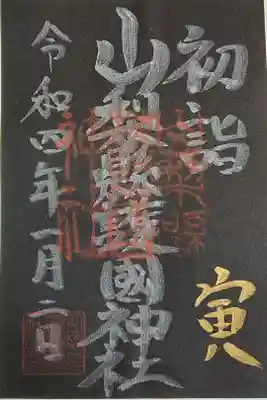 初詣
山梨縣護國神社
寅
令和四年一月二日